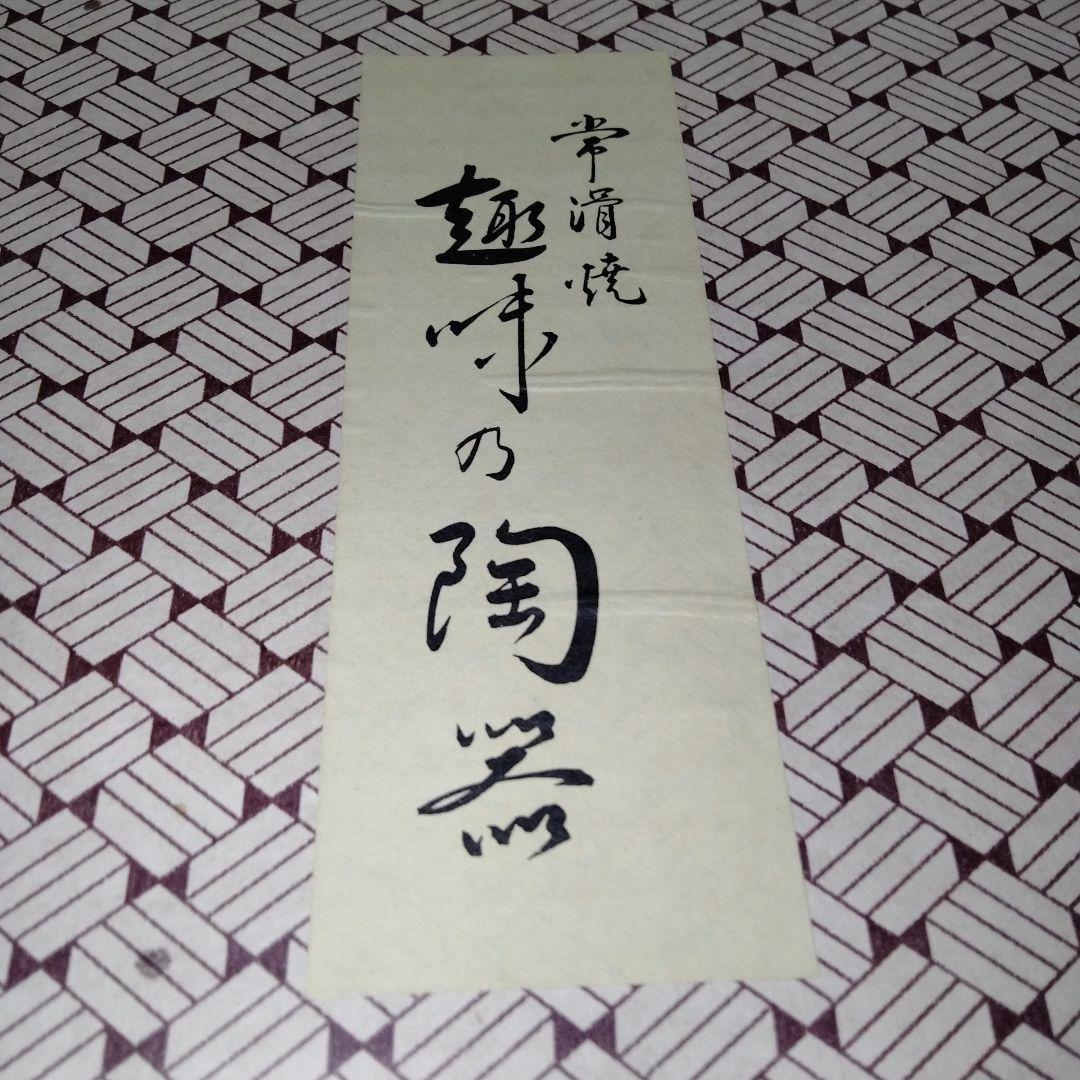 常滑焼
趣味乃陶器